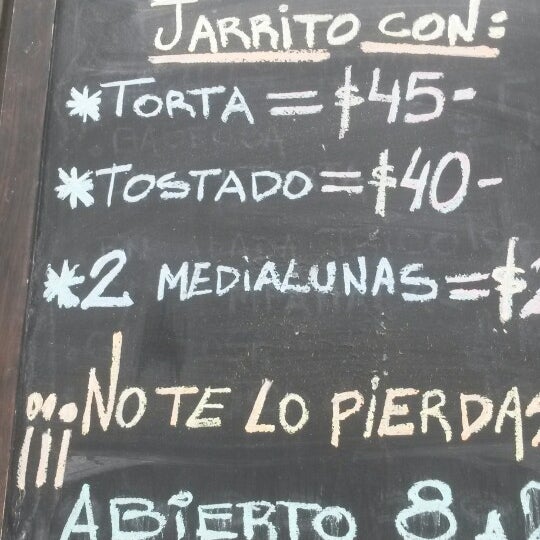 JARRITO CON:
*TORTA = $45-
*TOSTADO = $40-
*2 MEDIALUNAS = $2
¡¡¡NO TE LO PIERDAS
ABIERTO 8 A